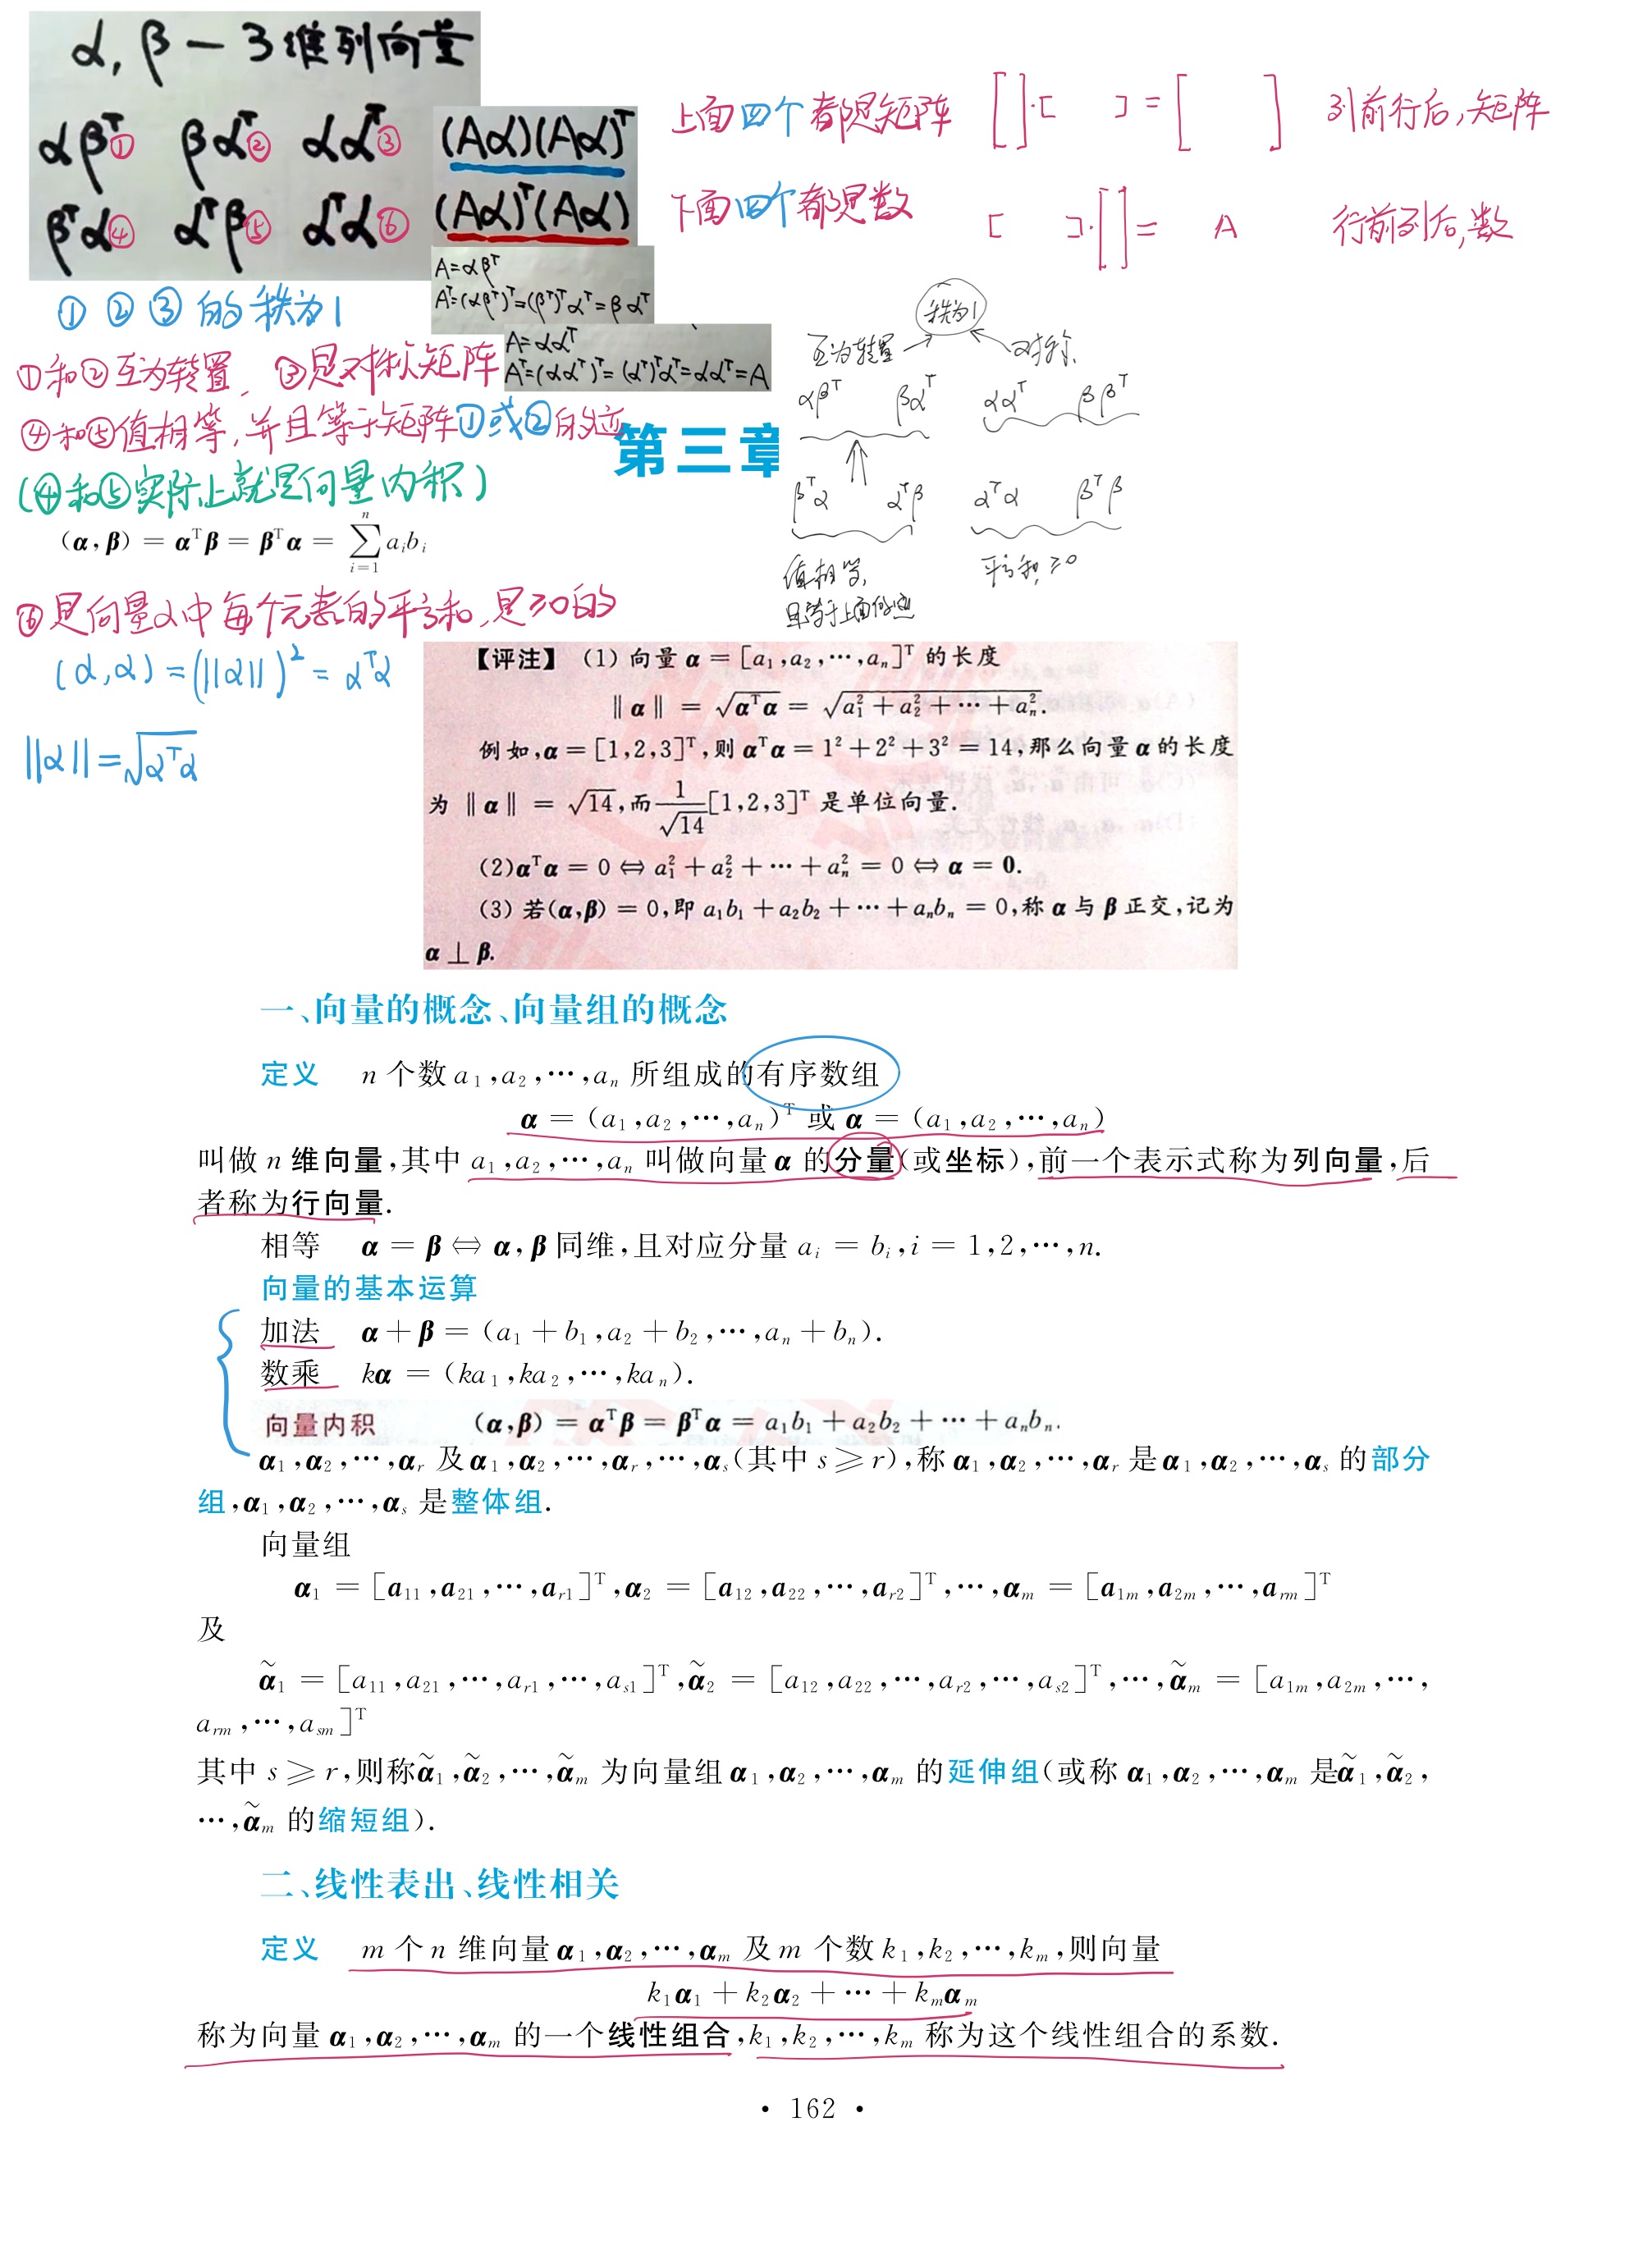 α, β — 3维列向量
αβᵀ① βαᵀ② ααᵀ③ (Aα)(Aα)ᵀ
βᵀα④ αᵀβ⑤ αᵀα⑥ (Aα)ᵀ(Aα)
上面四个都是矩阵 [ ]·[ ] = [ ] 列前行后,矩阵
下面四个都是数 [ ]·[ ] = A 行前列后,数
A=αβᵀ
Aᵀ=(αβᵀ)ᵀ=(βᵀ)ᵀαᵀ=βαᵀ
A=ααᵀ
Aᵀ=(ααᵀ)ᵀ=(αᵀ)ᵀαᵀ=ααᵀ=A
① ② ③ 的秩为1
①和②互为转置, ③是对称矩阵
④和⑤值相等,并且等于矩阵①或②的迹
(④和⑤实际上就是向量内积)
(α,β) = αᵀβ = βᵀα = ∑ⁿᵢ₌₁ aᵢbᵢ
⑥是向量α中每个元素的平方和,是≥0的
(α,α)=(||α||)²=αᵀα
||α||=√αᵀα
秩为1
互为转置 对称
αβᵀ βαᵀ ααᵀ ββᵀ
βᵀα αᵀβ αᵀα βᵀβ
值相等, 平方和,≥0
且等于上面的迹
第三章
【评注】 (1) 向量 α = [a₁,a₂,⋯,aₙ]ᵀ 的长度
‖α‖ = √αᵀα = √a₁²+a₂²+⋯+aₙ².
例如,α = [1,2,3]ᵀ,则 αᵀα = 1²+2²+3² = 14,那么向量 α 的长度
为 ‖α‖ = √14,而 1/√14 [1,2,3]ᵀ 是单位向量.
(2)αᵀα = 0 ⇔ a₁²+a₂²+⋯+aₙ² = 0 ⇔ α = 0.
(3) 若(α,β) = 0,即 a₁b₁+a₂b₂+⋯+aₙbₙ = 0,称 α 与 β 正交,记为
α ⊥ β.
一、向量的概念、向量组的概念
定义 n 个数 a₁,a₂,⋯,aₙ 所组成的有序数组
α = (a₁,a₂,⋯,aₙ)ᵀ 或 α = (a₁,a₂,⋯,aₙ)
叫做 n 维向量,其中 a₁,a₂,⋯,aₙ 叫做向量 α 的分量(或坐标),前一个表示式称为列向量,后
者称为行向量.
相等 α = β ⇔ α,β 同维,且对应分量 aᵢ = bᵢ,i = 1,2,⋯,n.
向量的基本运算
加法 α+β = (a₁+b₁,a₂+b₂,⋯,aₙ+bₙ).
数乘 kα = (ka₁,ka₂,⋯,kaₙ).
向量内积 (α,β) = αᵀβ = βᵀα = a₁b₁+a₂b₂+⋯+aₙbₙ.
α₁,α₂,⋯,αᵣ 及 α₁,α₂,⋯,αᵣ,⋯,αₛ(其中 s ⩾ r),称 α₁,α₂,⋯,αᵣ 是 α₁,α₂,⋯,αₛ 的部分
组,α₁,α₂,⋯,αₛ 是整体组.
向量组
α₁ = [a₁₁,a₂₁,⋯,aᵣ₁]ᵀ,α₂ = [a₁₂,a₂₂,⋯,aᵣ₂]ᵀ,⋯,αₘ = [a₁ₘ,a₂ₘ,⋯,aᵣₘ]ᵀ
及
α̃₁ = [a₁₁,a₂₁,⋯,aᵣ₁,⋯,aₛ₁]ᵀ,α̃₂ = [a₁₂,a₂₂,⋯,aᵣ₂,⋯,aₛ₂]ᵀ,⋯,α̃ₘ = [a₁ₘ,a₂ₘ,⋯,
aᵣₘ,⋯,aₛₘ]ᵀ
其中 s ⩾ r,则称α̃₁,α̃₂,⋯,α̃ₘ 为向量组 α₁,α₂,⋯,αₘ 的延伸组(或称 α₁,α₂,⋯,αₘ 是α̃₁,α̃₂,
⋯,α̃ₘ 的缩短组).
二、线性表出、线性相关
定义 m 个 n 维向量 α₁,α₂,⋯,αₘ 及 m 个数 k₁,k₂,⋯,kₘ,则向量
k₁α₁+k₂α₂+⋯+kₘαₘ
称为向量 α₁,α₂,⋯,αₘ 的一个线性组合,k₁,k₂,⋯,kₘ 称为这个线性组合的系数.
• 162 •